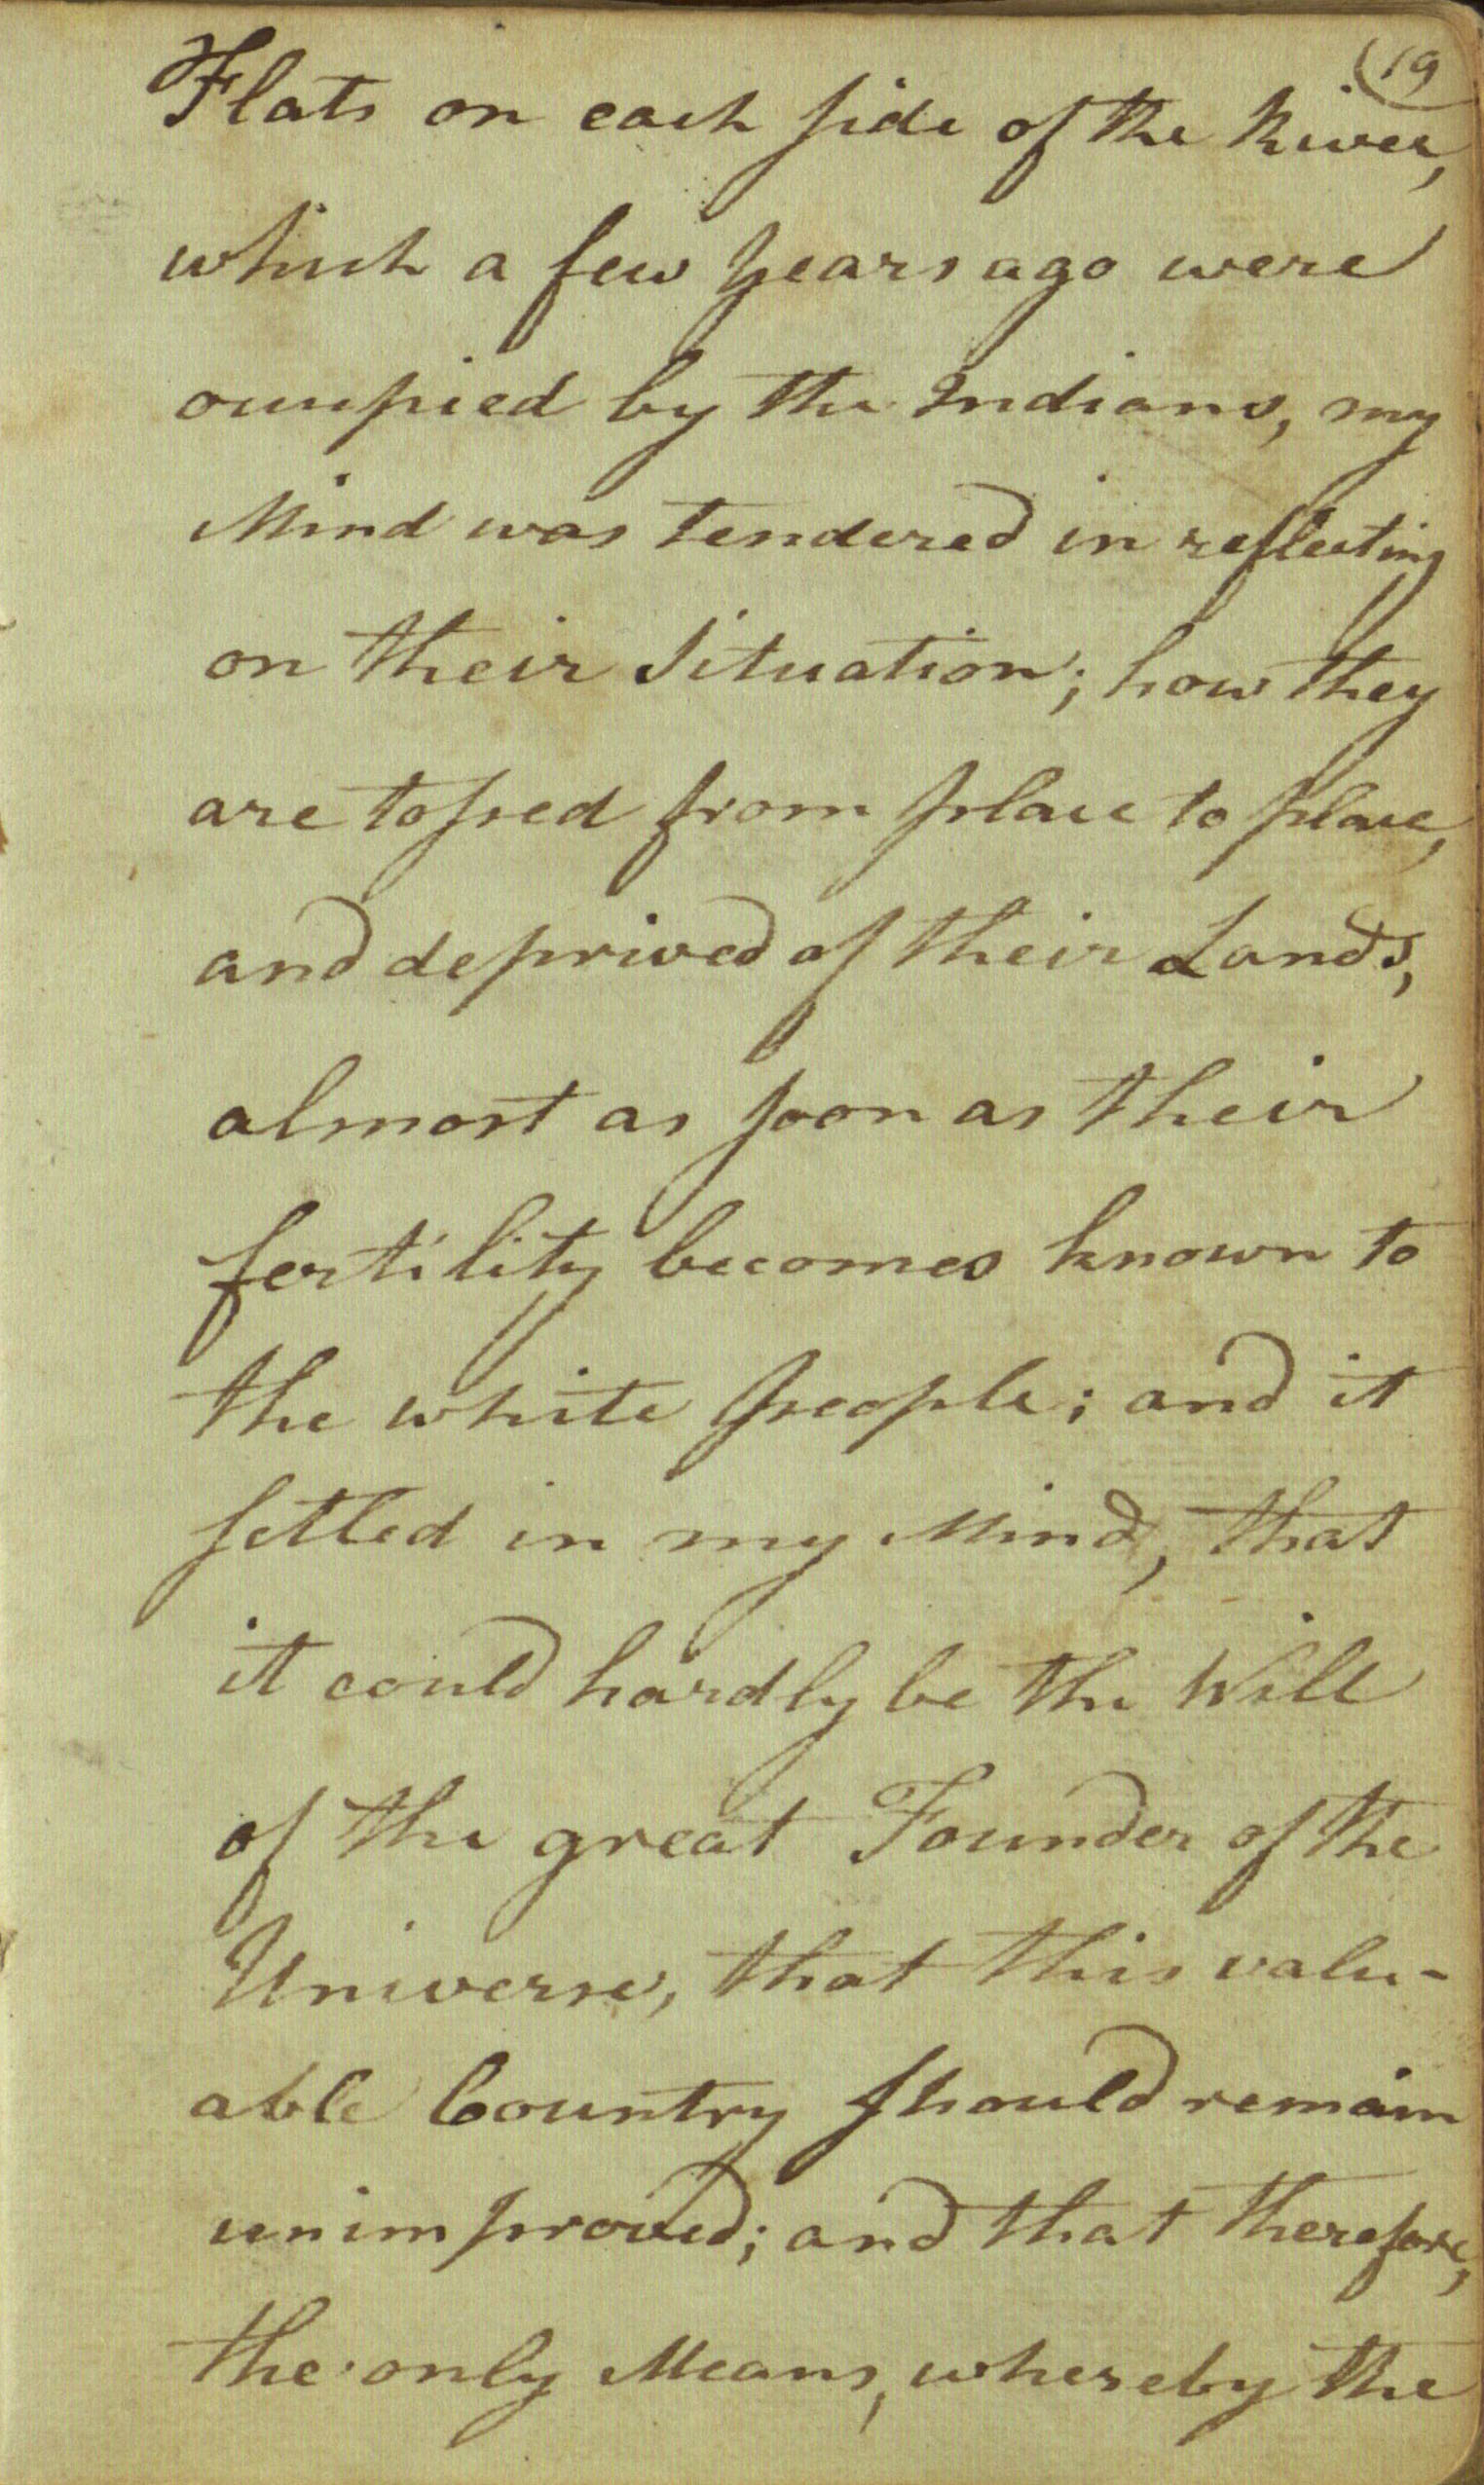 19
Flats on each side of the River,
which a few Years ago were
occupied by the Indians, my
Mind was tendered in reflecting
on their Situation; how they
are tossed from place to place,
and deprived of their Lands,
almost as soon as their
fertility becomes known to
the white people; and it
settled in my Mind, that
it could hardly be the Will
of the great Founder of the
Universe, that this valu-
able Country should remain
unimproved; and that therefore,
the only Means, whereby the